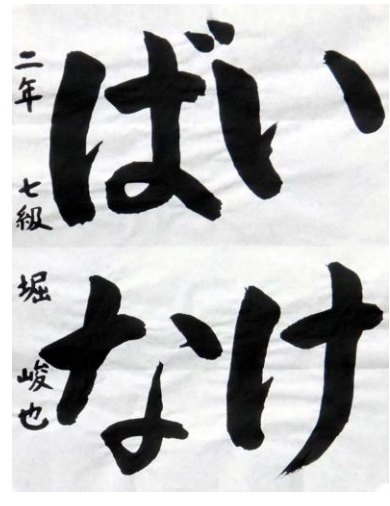 いけ
ばな
二年 七級 堀 峻也